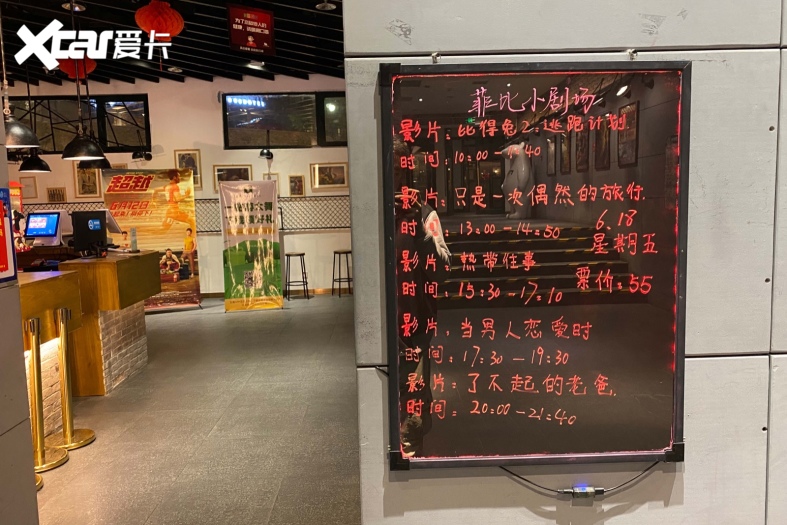 Xcar爱卡
超越
6月12日
菲比小剧场
影片：比得兔2：逃跑计划
时间：10:00 40
影片：只是一次偶然的旅行
时：13:00-14:50
6.18
星期五
影片：热带往事
票价：55
时间：15:30-17:10
影片：当男人恋爱时
时间：17:30-19:30
影片：了不起的老爸
时间：20:00-21:40